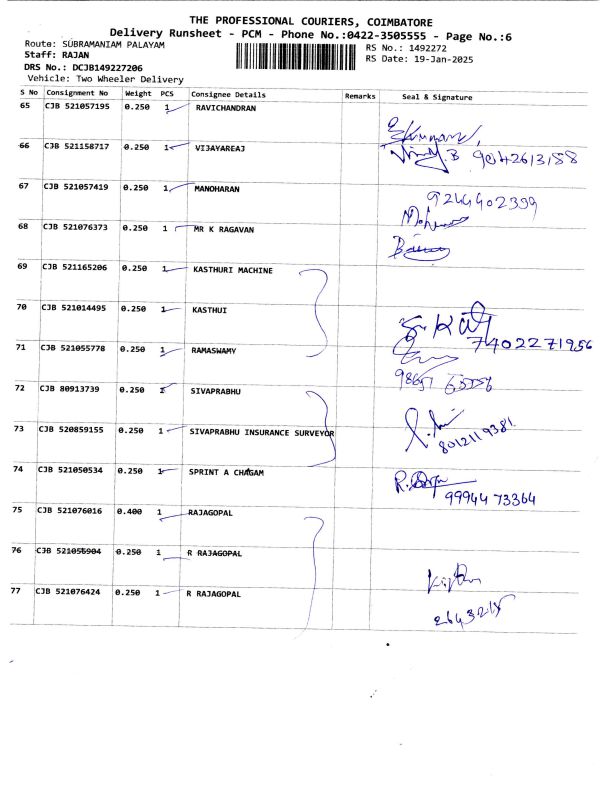 THE PROFESSIONAL COURIERS, COIMBATORE
Delivery Runsheet - PCM - Phone No.:0422-3505555 - Page No.:6
Route: SUBRAMANIAM PALAYAM
RS No.: 1492272
Staff: RAJAN
RS Date: 19-Jan-2025
DRS No.: DCJB149227206
Vehicle: Two Wheeler Delivery
S No Consignment No Weight PCS Consignee Details Remarks Seal & Signature
65 CJB 521057195 0.250 1 RAVICHANDRAN
66 CJB 521158717 0.250 1 VIJAYAREAJ 9042613158
67 CJB 521057419 0.250 1 MANOHARAN 9244402399
68 CJB 521076373 0.250 1 MR K RAGAVAN
69 CJB 521165206 0.250 1 KASTHURI MACHINE
70 CJB 521014495 0.250 1 KASTHUI
7402271956
71 CJB 521055778 0.250 1 RAMASWAMY
72 CJB 80913739 0.250 1 SIVAPRABHU
73 CJB 520859155 0.250 1 SIVAPRABHU INSURANCE SURVEYOR 8012119381
74 CJB 521050534 0.250 1 SPRINT A CHAGAM
9994473364
75 CJB 521076016 0.400 1 RAJAGOPAL
76 CJB 521056904 0.250 1 R RAJAGOPAL
77 CJB 521076424 0.250 1 R RAJAGOPAL